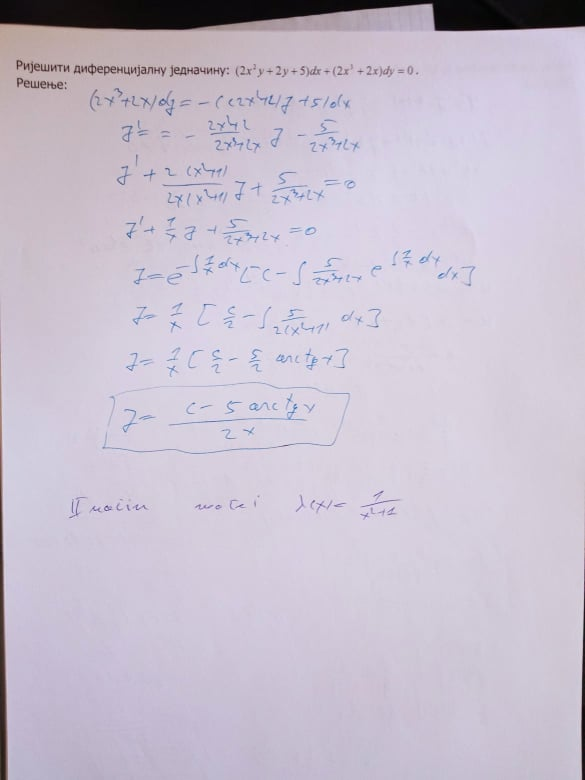 Ријешити диференцијалну једначину: (2x²y + 2y + 5)dx + (2x³ + 2x)dy = 0.
Решење:
(2x³+2x)dy = -((2x²+2)y+5)dx
y' = = - \frac{2x²+2}{2x³+2x} y - \frac{5}{2x³+2x}
y' + \frac{2(x²+1)}{2x(x²+1)} y + \frac{5}{2x³+2x} = 0
y' + \frac{1}{x} y + \frac{5}{2x³+2x} = 0
y = e^{-∫\frac{1}{x}dx} [c - ∫ \frac{5}{2x³+2x} e^{∫\frac{1}{x}dx} dx]
y = \frac{1}{x} [\frac{c}{2} - ∫ \frac{5}{2(x²+1)} dx]
y = \frac{1}{x} [\frac{c}{2} - \frac{5}{2} arctg x]
y = \frac{c - 5 arctg x}{2x}
II način može i λ(x) = \frac{1}{x²+1}